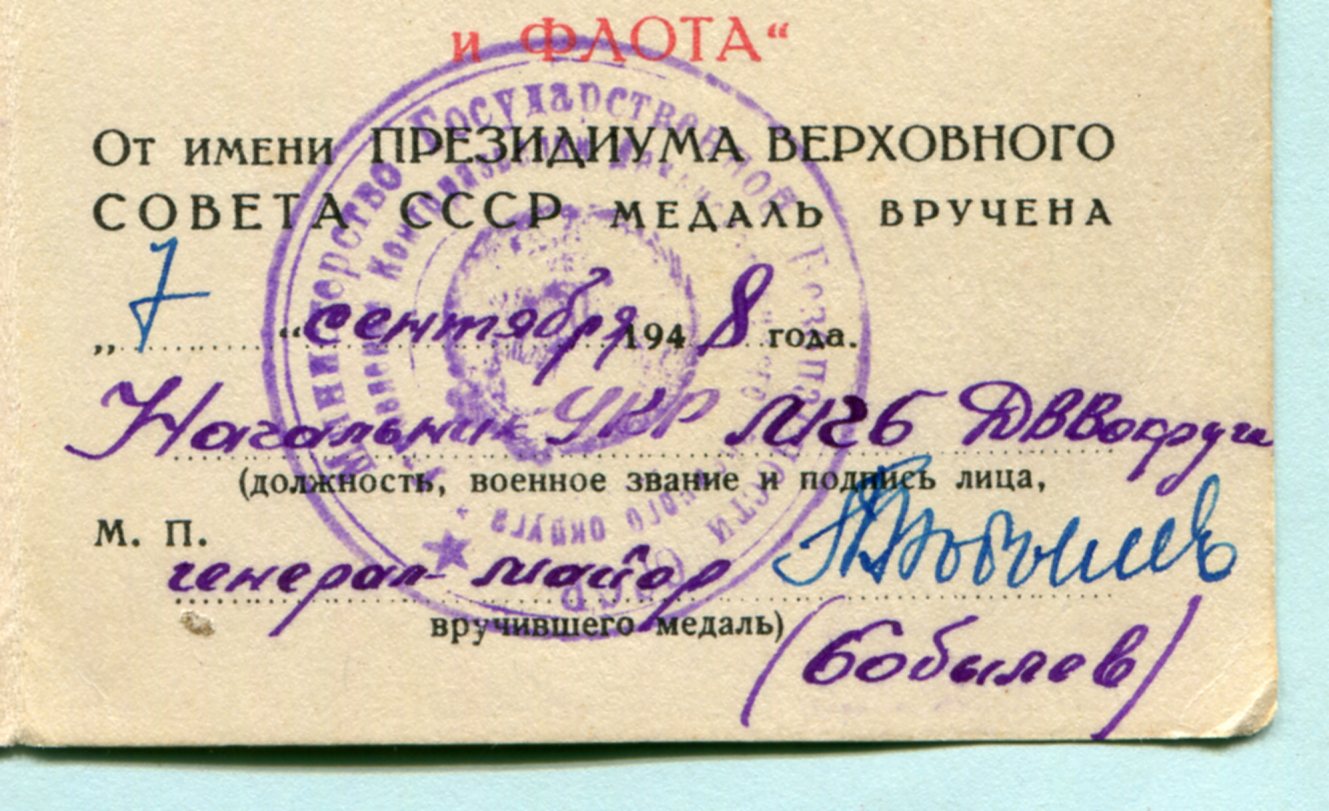 и ФЛОТА“
От имени ПРЕЗИДИУМА ВЕРХОВНОГО
СОВЕТА СССР МЕДАЛЬ ВРУЧЕНА
„7“ сентября 1948 года.
Начальник УКР МГБ ДВВокруга
(должность, военное звание и подпись лица,
М. П.
генерал-майор Бобылев
вручившего медаль)
(Бобылев)
Министерство Государственной Безопасности СССР
Контрразведки
округа